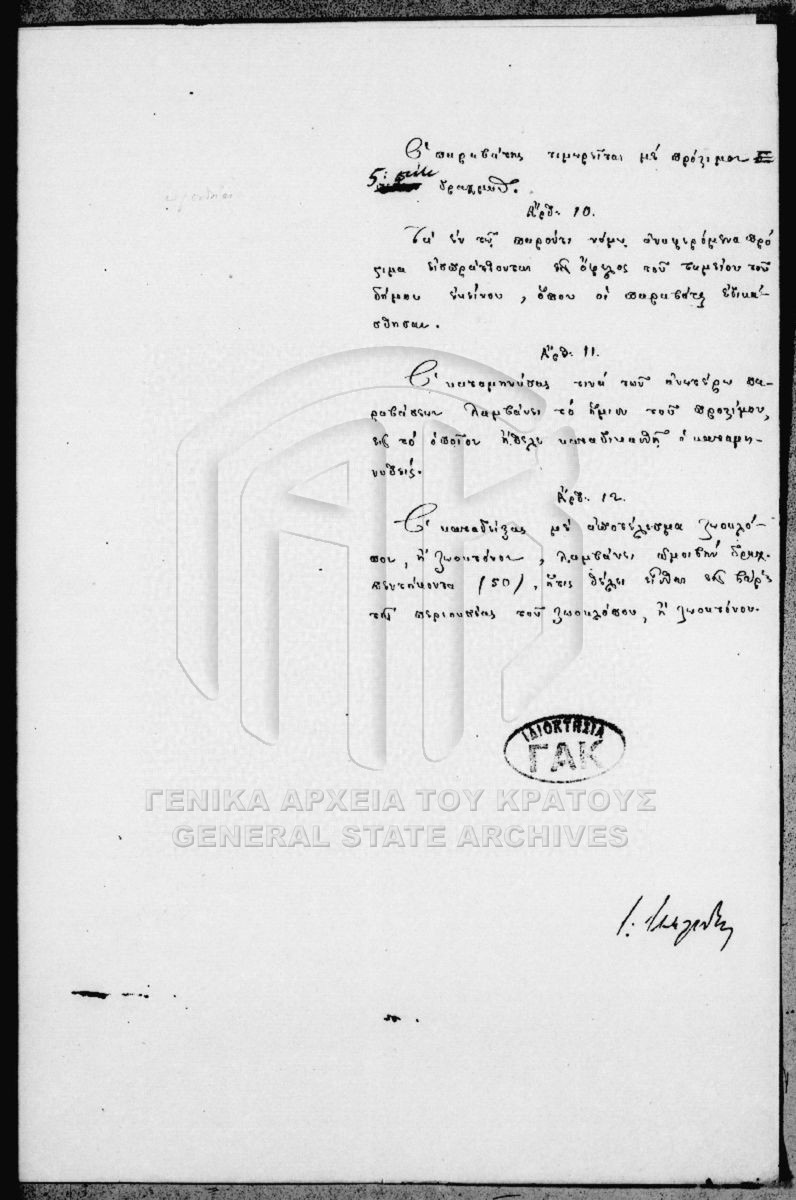 Ὁ παραβάτης τιμωρεῖται μὲ πρόξιμον
5:
δραχμῶν.
Ἄρθ: 10.
Τὰ ἐν τῷ παρόντι νόμῳ ἀναφερόμενα πρό
ξιμα εἰσπράττονται εἰς ὄφελος τοῦ ταμείου τοῦ
δήμου ἐκείνου, ὅπου οἱ παραβάται ἐδικά-
σθησαν.
Ἄρθ: 11.
Ὁ καταμηνύσας τινὰ τῶν ἀνωτέρω πα-
ραβάσεων λαμβάνει τὸ ἥμισυ τοῦ προξίμου,
εἰς τὸ ὁποῖον ἤθελε καταδικασθῆ ὁ καταμη-
νυθείς.
Ἄρθ: 12.
Ὁ καταδείξας μὲ ἀποτέλεσμα ζωοκλό-
πον, ἢ ζωοκτόνον, λαμβάνει ἀμοιβὴν δραχ.
πεντήκοντα (50), ἥτις θέλει εἶσθαι εἰς βάρος
τῆς περιουσίας τοῦ ζωοκλόπου, ἢ ζωοκτόνου.
ΙΔΙΟΚΤΗΣΙΑ
ΓΑΚ
ΓΕΝΙΚΑ ΑΡΧΕΙΑ ΤΟΥ ΚΡΑΤΟΥΣ
GENERAL STATE ARCHIVES